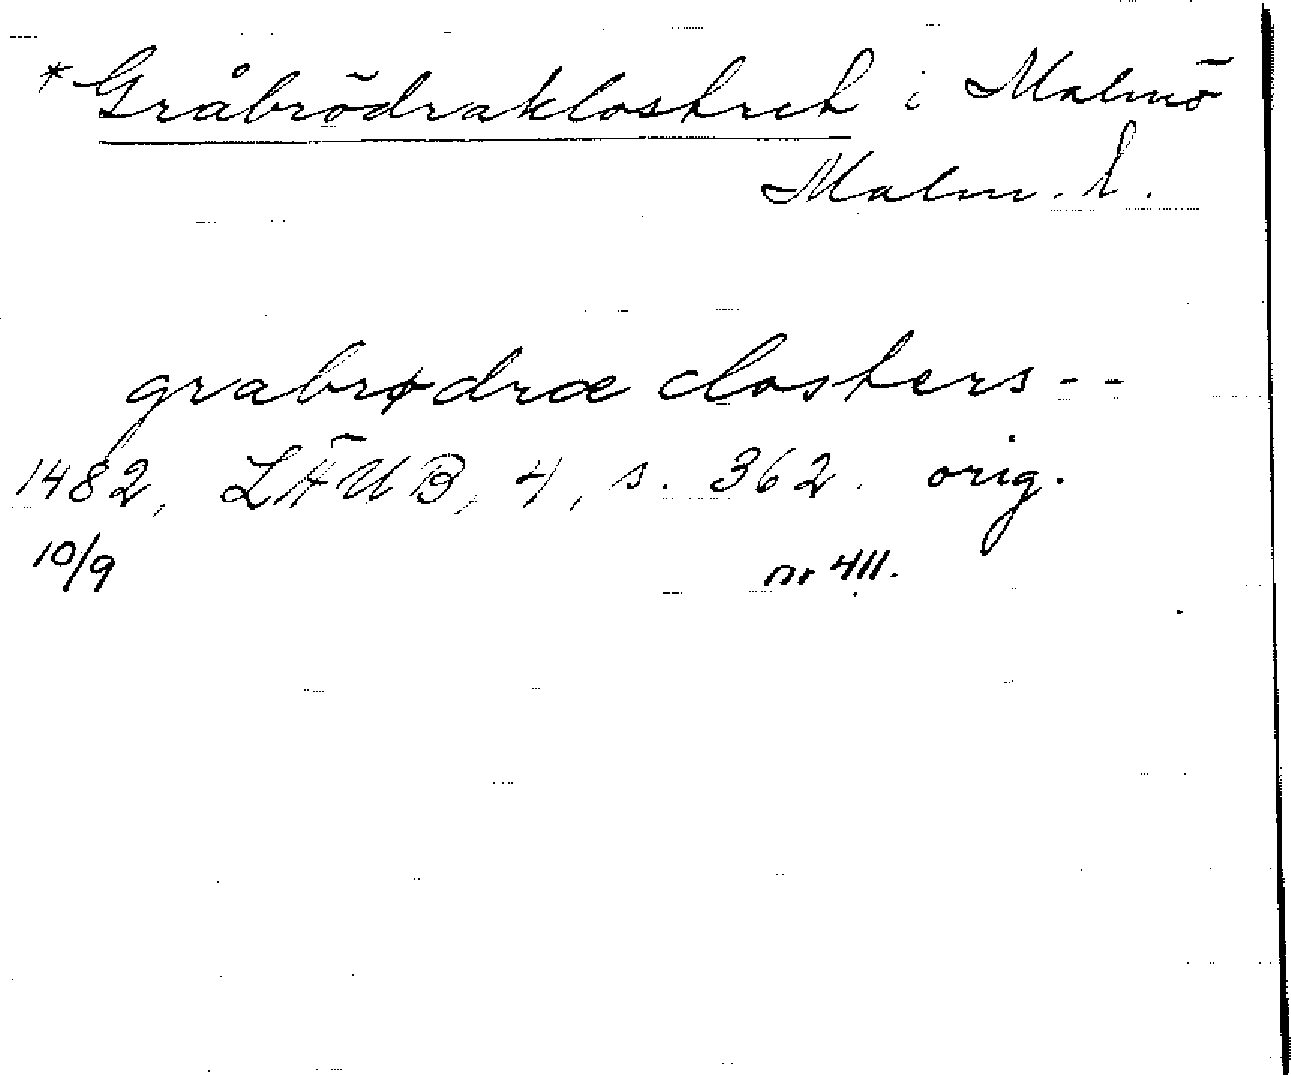 *Gråbrödraklostret i Malmö
Malm. L.
grabrødræ closters--
1482, LÄUB, 4, s. 362. orig.
10/9 nr 411.